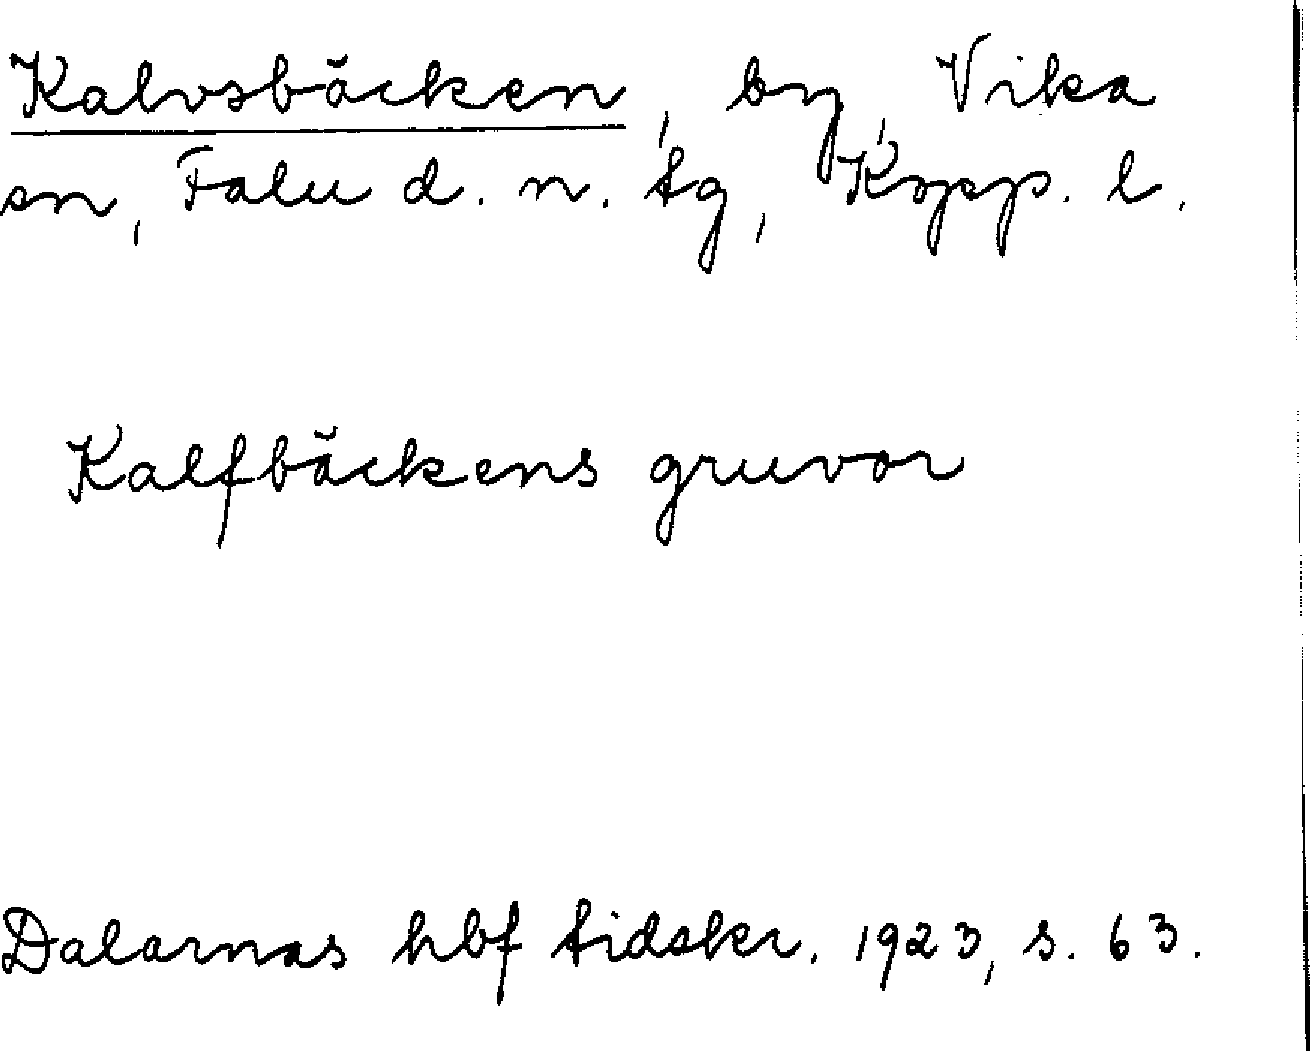 Kalvsbäcken, by, Vika
sn, Falu d. n. tg, Kopp. l.
Kalfbäckens gruvor
Dalarnas hbf tidskr. 1923, s. 63.